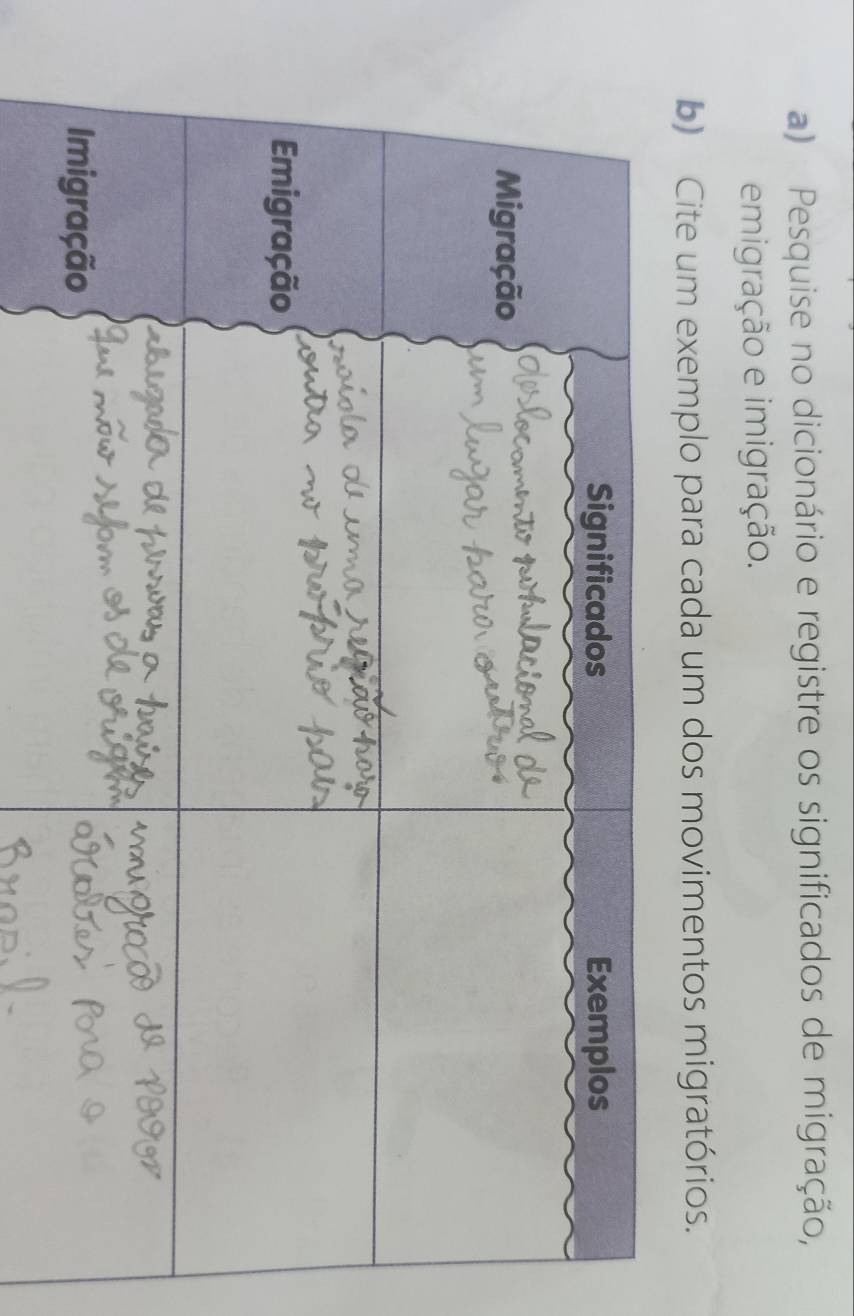 a) Pesquise no dicionário e registre os significados de migração,
emigração e imigração.
b) Cite um exemplo para cada um dos movimentos migratórios.
Significados
Exemplos
Migração
deslocamento populacional de
um lugar para outros
Emigração
saida de uma região para
outra no próprio pais
Imigração
chegada de pessoas a paises
que não sejam os de origem
imigração de povos
árabes para o
Brasil.